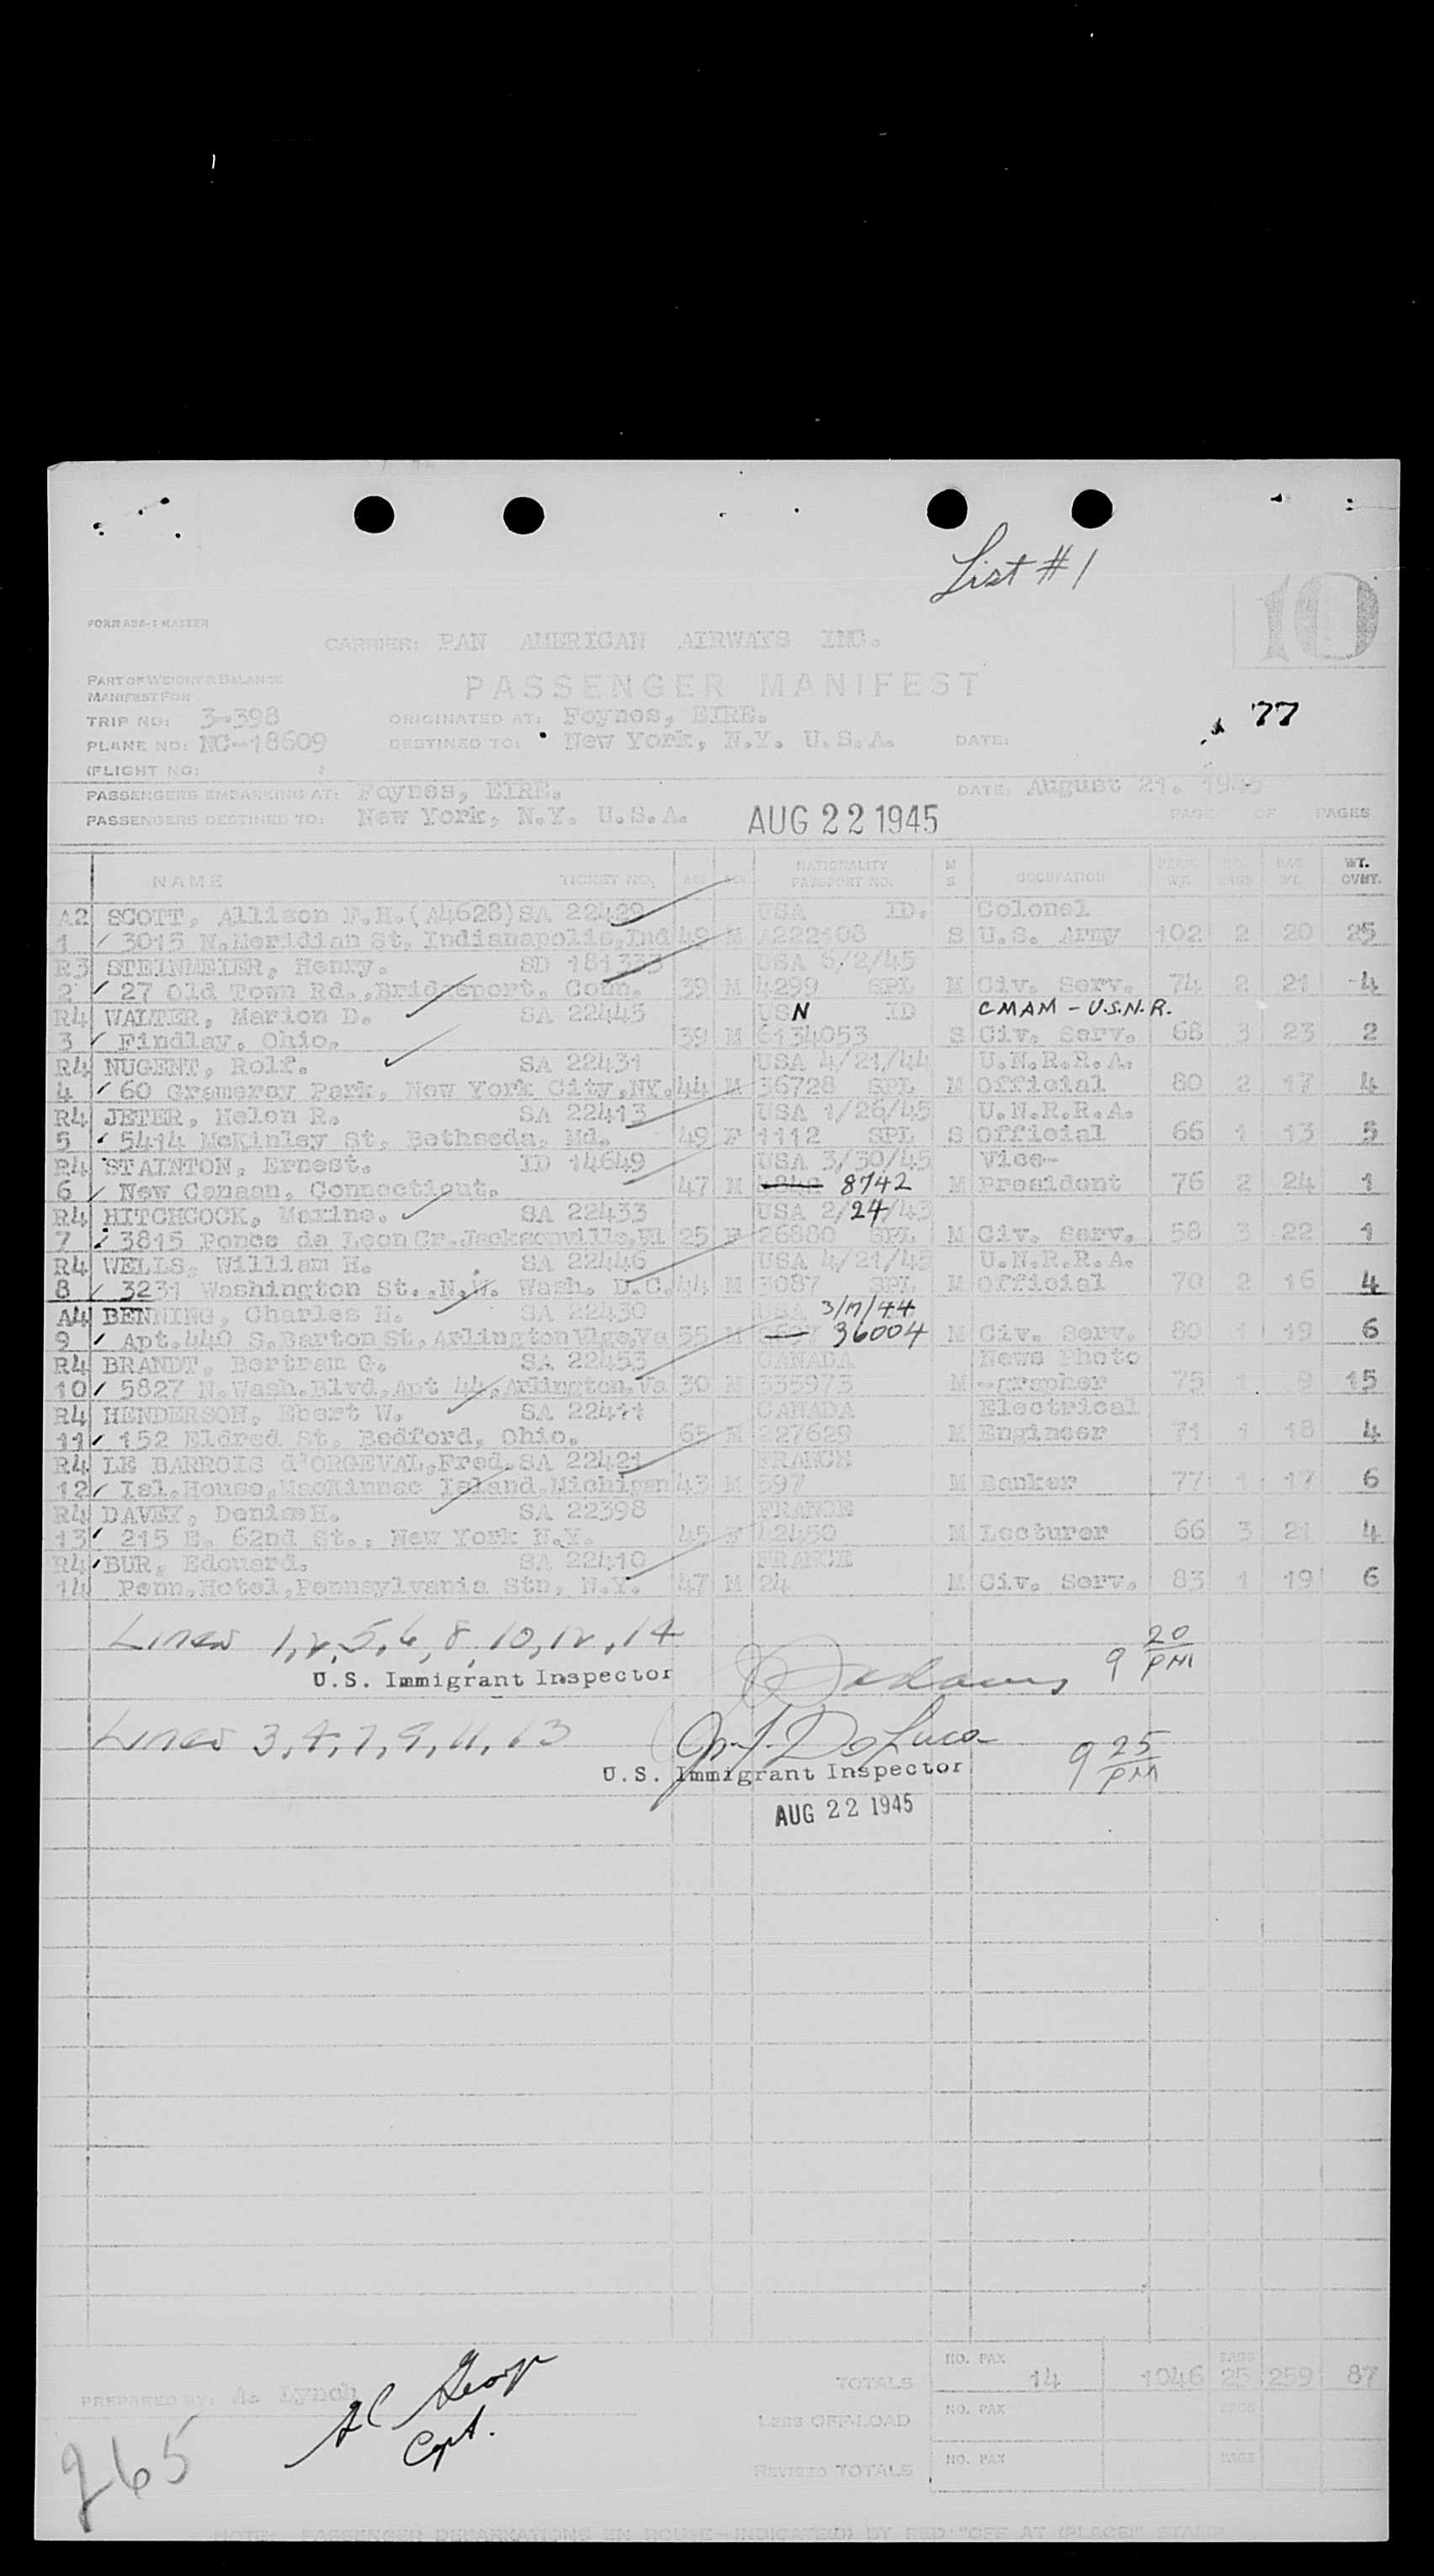 List #1
10
FORM A38-1 MASTER
CARRIER: PAN AMERICAN AIRWAYS INC.
PART OF WEIGHT & BALANCE
MANIFEST FOR
PASSENGER MANIFEST
77
TRIP NO: 3-398 ORIGINATED AT: Foynes, EIRE.
PLANE NO: NC-18609 DESTINED TO: New York, N.Y. U.S.A. DATE:
(FLIGHT NO: )
PASSENGERS EMBARKING AT: Foynes, EIRE. DATE: August 21. 1945
PASSENGERS DESTINED TO: New York, N.Y. U.S.A. AUG 22 1945 PAGE OF PAGES
NAME TICKET NO. AGE SEX NATIONALITY PASSPORT NO. M S OCCUPATION PERS. WT. NO. BAGS BAG WT. WT. CVNT.
A2 SCOTT, Allison F.H.(A4628)SA 22429 USA ID. Colonel
1 3015 N.Meridian St, Indianapolis,Ind 49 M A222108 S U.S. Army 102 2 20 25
R3 STEINMEIER, Henry. SD 181333 USA 6/2/45
2 27 Old Town Rd.,Bridgeport, Conn. 39 M 4299 SPL M Civ. Serv. 74 2 21 4
R4 WALTER, Marion D. SA 22445 USN ID CMAM - U.S.N.R.
3 Findlay, Ohio. 39 M 6134053 S Civ. Serv. 68 3 23 2
R4 NUGENT, Rolf. SA 22431 USA 4/21/44 U.N.R.R.A.
4 60 Gramercy Park, New York City,NY. 44 M 36728 SPL M Official 80 2 17 4
R4 JETER, Helen R. SA 22413 USA 1/26/45 U.N.R.R.A.
5 5414 McKinley St, Bethseda, Md. 49 F 1112 SPL S Official 66 1 13 5
R4 STAINTON, Ernest. ID 14649 USA 3/30/45 Vice-
6 New Canaan, Connecticut. 47 M 8742 M President 76 2 24 1
R4 HITCHCOCK, Maxine. SA 22433 USA 2/24/43
7 3815 Ponce de Leon Cr.Jacksonville,Fl 25 F 26880 SPL M Civ. Serv. 58 3 22 1
R4 WELLS, William H. SA 22446 USA 4/21/45 U.N.R.R.A.
8 3231 Washington St.,N.W. Wash. D.C. 44 M 3087 SPL M Official 70 2 16 4
A4 BENNING, Charles H. SA 22430 USA 3/17/44
9 Apt.440 S.Barton St,Arlington Vlge,Va 35 M 36004 M Civ. Serv. 80 1 19 6
R4 BRANDT, Bertram G. SA 22453 CANADA News Photo
10 5827 N.Wash.Blvd,Apt 44,Arlington,Va 30 M 335973 M -grapher 75 1 9 15
R4 HENDERSON, Ebert W. SA 22411 CANADA Electrical
11 152 Eldred St. Bedford, Ohio. 65 M 227629 M Engineer 71 1 18 4
R4 LE BARROIS d'ORGEVAL,Fred.SA 22421 FRANCE
12 Isl.House,MacKinnac Island,Michigan 43 M 597 M Banker 77 1 17 6
R4 DAVEY, Denise H. SA 22398 FRANCE
13 215 E. 62nd St., New York N.Y. 45 F 42450 M Lecturer 66 3 21 4
R4 BUR, Edouard. SA 22410 FRANCE
14 Penn.Hotel,Pennsylvania Stn, N.Y. 47 M 24 M Civ. Serv. 83 1 19 6
Lines 1,2,5,6,8,10,12,14 Adams 9 20 PM
U.S. Immigrant Inspector
Lines 3,4,7,9,11,13 De Luca 9 25 PM
U.S. Immigrant Inspector
AUG 22 1945
TOTALS NO. PAX 14 1046 BAGS 25 259 87
PREPARED BY: A. Lynch
LESS OFF-LOAD NO. PAX BAGS
REVISED TOTALS NO. PAX BAGS
Capt.
265
NOTE: PASSENGER DEBARKATIONS EN ROUTE-INDICATED) BY RED "OFF AT (PLACE)" STAMP